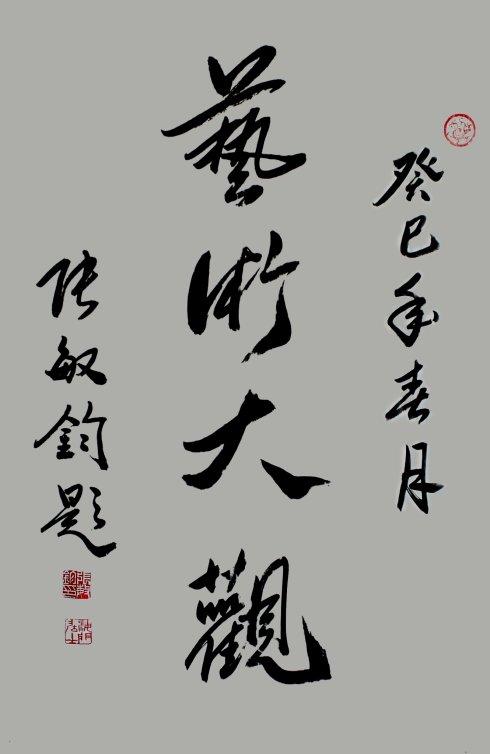 癸巳年春月
藝術大觀
张敏鈞题